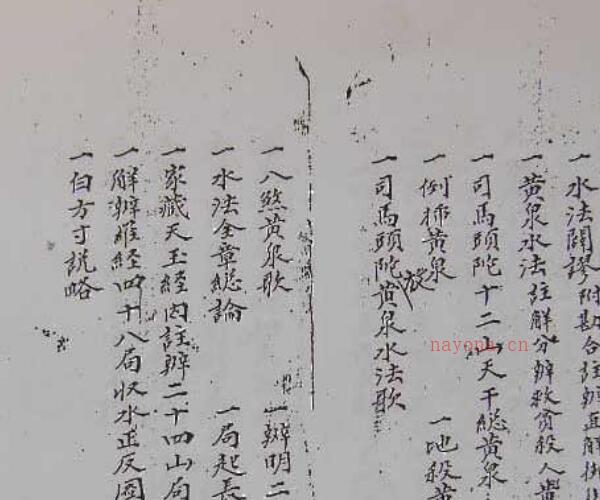 一水法闢謬附勘合註辦直解
一黄泉水法註解分辨救貧殺人
一司馬頭陀十二山天干総黄泉
一例揷黄泉 一地殺黄
一司馬頭陀黄泉水法歌
一八煞黄泉歌 一辨明二
一水法全章総論 一局起長
一家藏天玉経内註辨二十四山局
一解辨雒経四十八局收水正反圖
一白方寸説略
nayona.cn